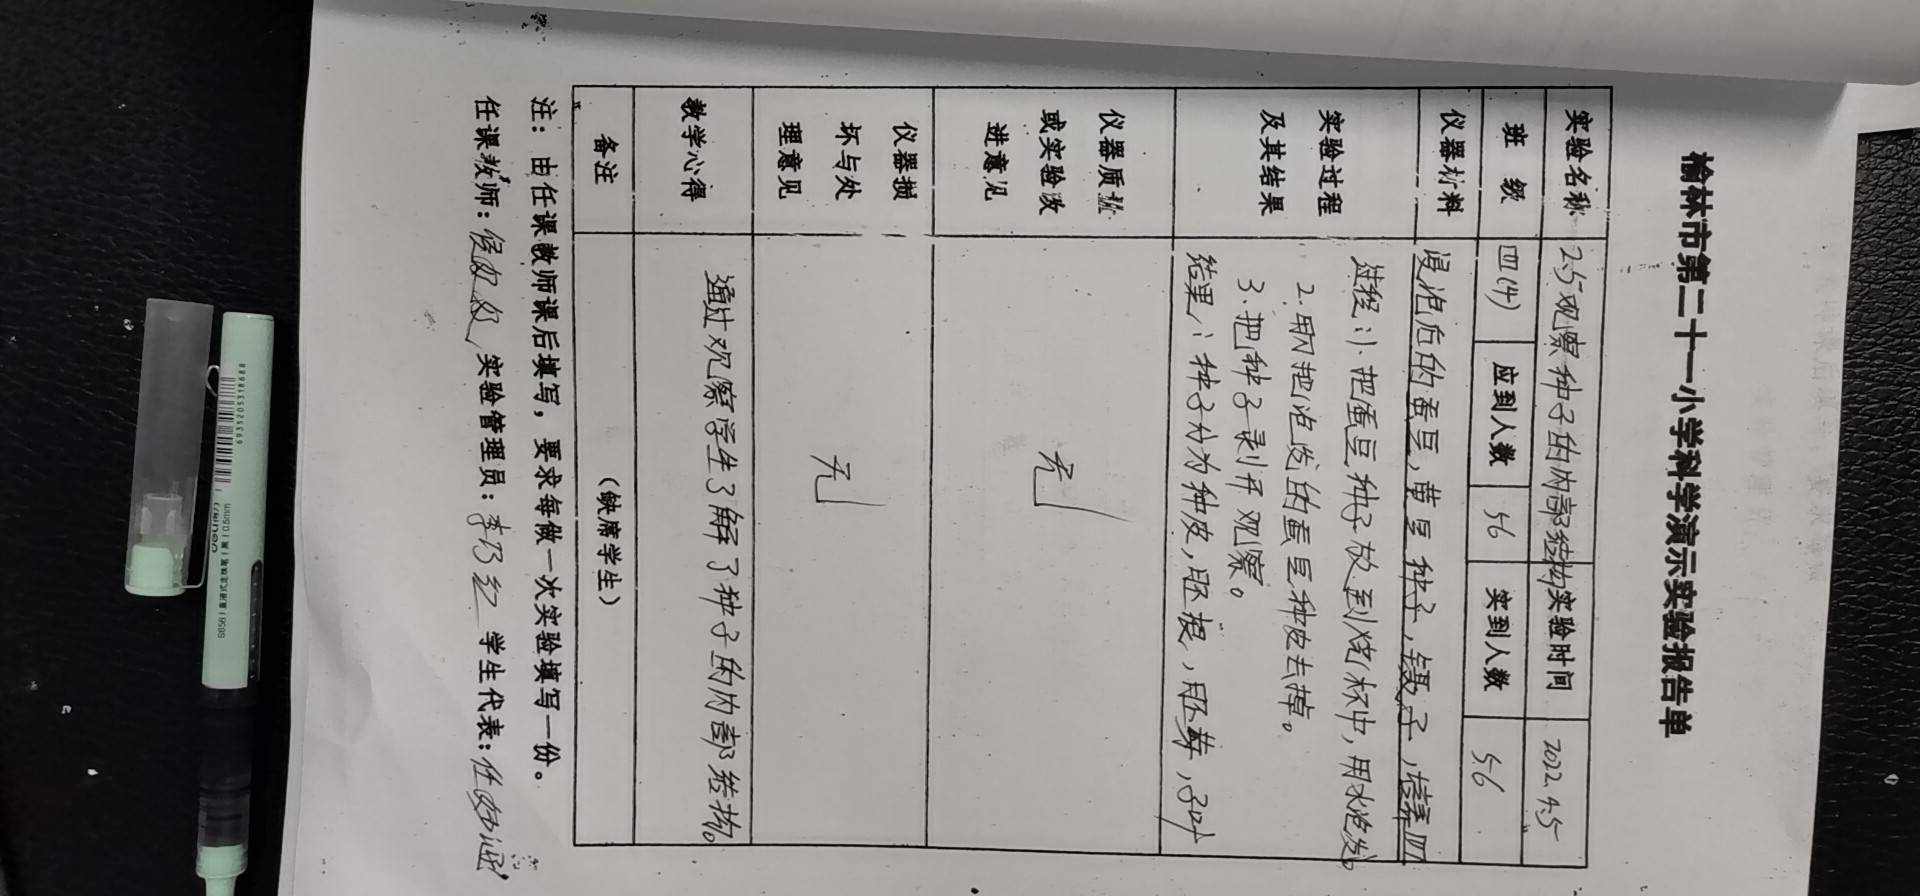 榆林市第二十一小学科学演示实验报告单
实验名称 2.5观察种子的内部结构 实验时间 2022.4.5
班 级 四(4) 应到人数 56 实到人数 56
仪器材料 浸泡后的蚕豆,黄豆种子,镊子,培养皿
实验过程及其结果 过程:1.把蚕豆种子放到烧杯中,用水泡发。
2.用把泡发的蚕豆种皮去掉。
3.把种子剥开观察。
结果:种子分为种皮,胚根,胚芽,子叶
仪器质量或实验改进意见 无
仪器损坏与处理意见 无
教学心得 通过观察学生了解了种子的内部结构。
备注 (缺席学生)
注:由任课教师课后填写,要求每做一次实验填写一份。
任课教师: 实验管理员:李巧红 学生代表:任
deli得力
S656 直液式走珠笔 黑 0.5mm
6935205318688